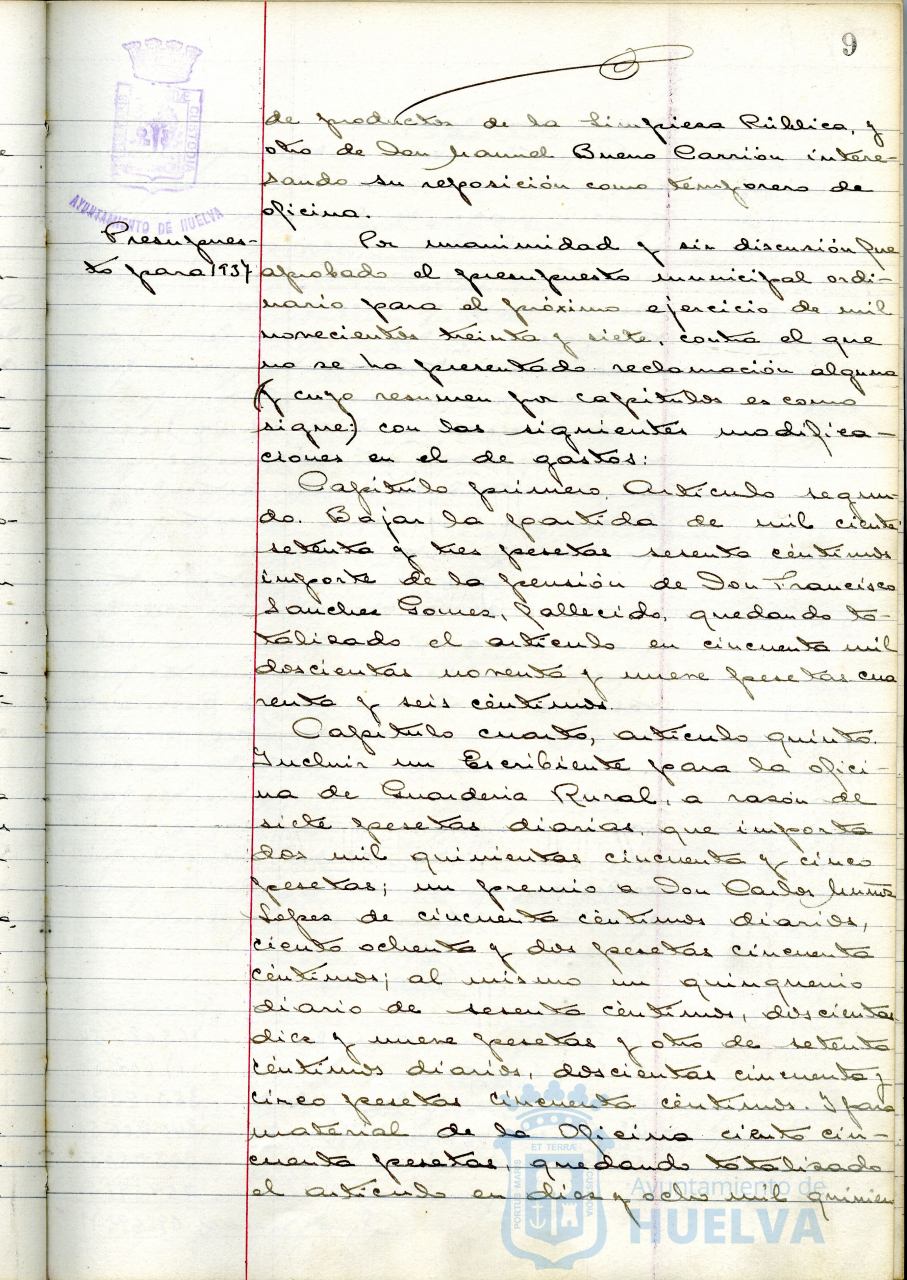 9
de productos de la Limpieza Pública, y
otro de Don Manuel Bueno Carrión intere-
sando su reposición como temporero de
oficina.
AYUNTAMIENTO DE HUELVA
Presupues-
to para 1937
Por unanimidad y sin discusión fue
aprobado el presupuesto municipal ordi-
nario para el próximo ejercicio de mil
novecientos treinta y siete, contra el que
no se ha presentado reclamación alguna
(y cuyo resumen por capítulos es como
sigue:) con las siguientes modifica-
ciones en el de gastos:
Capítulo primero. Artículo segun-
do. Bajar la partida de mil ciento
setenta y tres pesetas sesenta céntimos
importe de la pensión de Don Francisco
Sanchez Gomez, fallecido, quedando to-
talizado el artículo en cincuenta mil
doscientas noventa y nueve pesetas cua
renta y seis céntimos.
Capítulo cuarto, artículo quinto.
Incluir un Escribiente para la ofici-
na de Guardería Rural, a razón de
siete pesetas diarias, que importa
dos mil quinientas cincuenta y cinco
pesetas; un premio a Don Carlos Muñoz
López de cincuenta céntimos diarios,
ciento ochenta y dos pesetas cincuenta
céntimos; al mismo un quinquenio
diario de sesenta céntimos, doscientas
diez y nueve pesetas y otro de setenta
céntimos diarios, doscientas cincuenta y
cinco pesetas cincuenta céntimos. Y para
material de la Oficina ciento cin-
cuenta pesetas, quedando totalizado
el artículo en diez y ocho mil quinien
PORTUS MARIS
ET TERRÆ
CUSTODIA
Ayuntamiento de
HUELVA